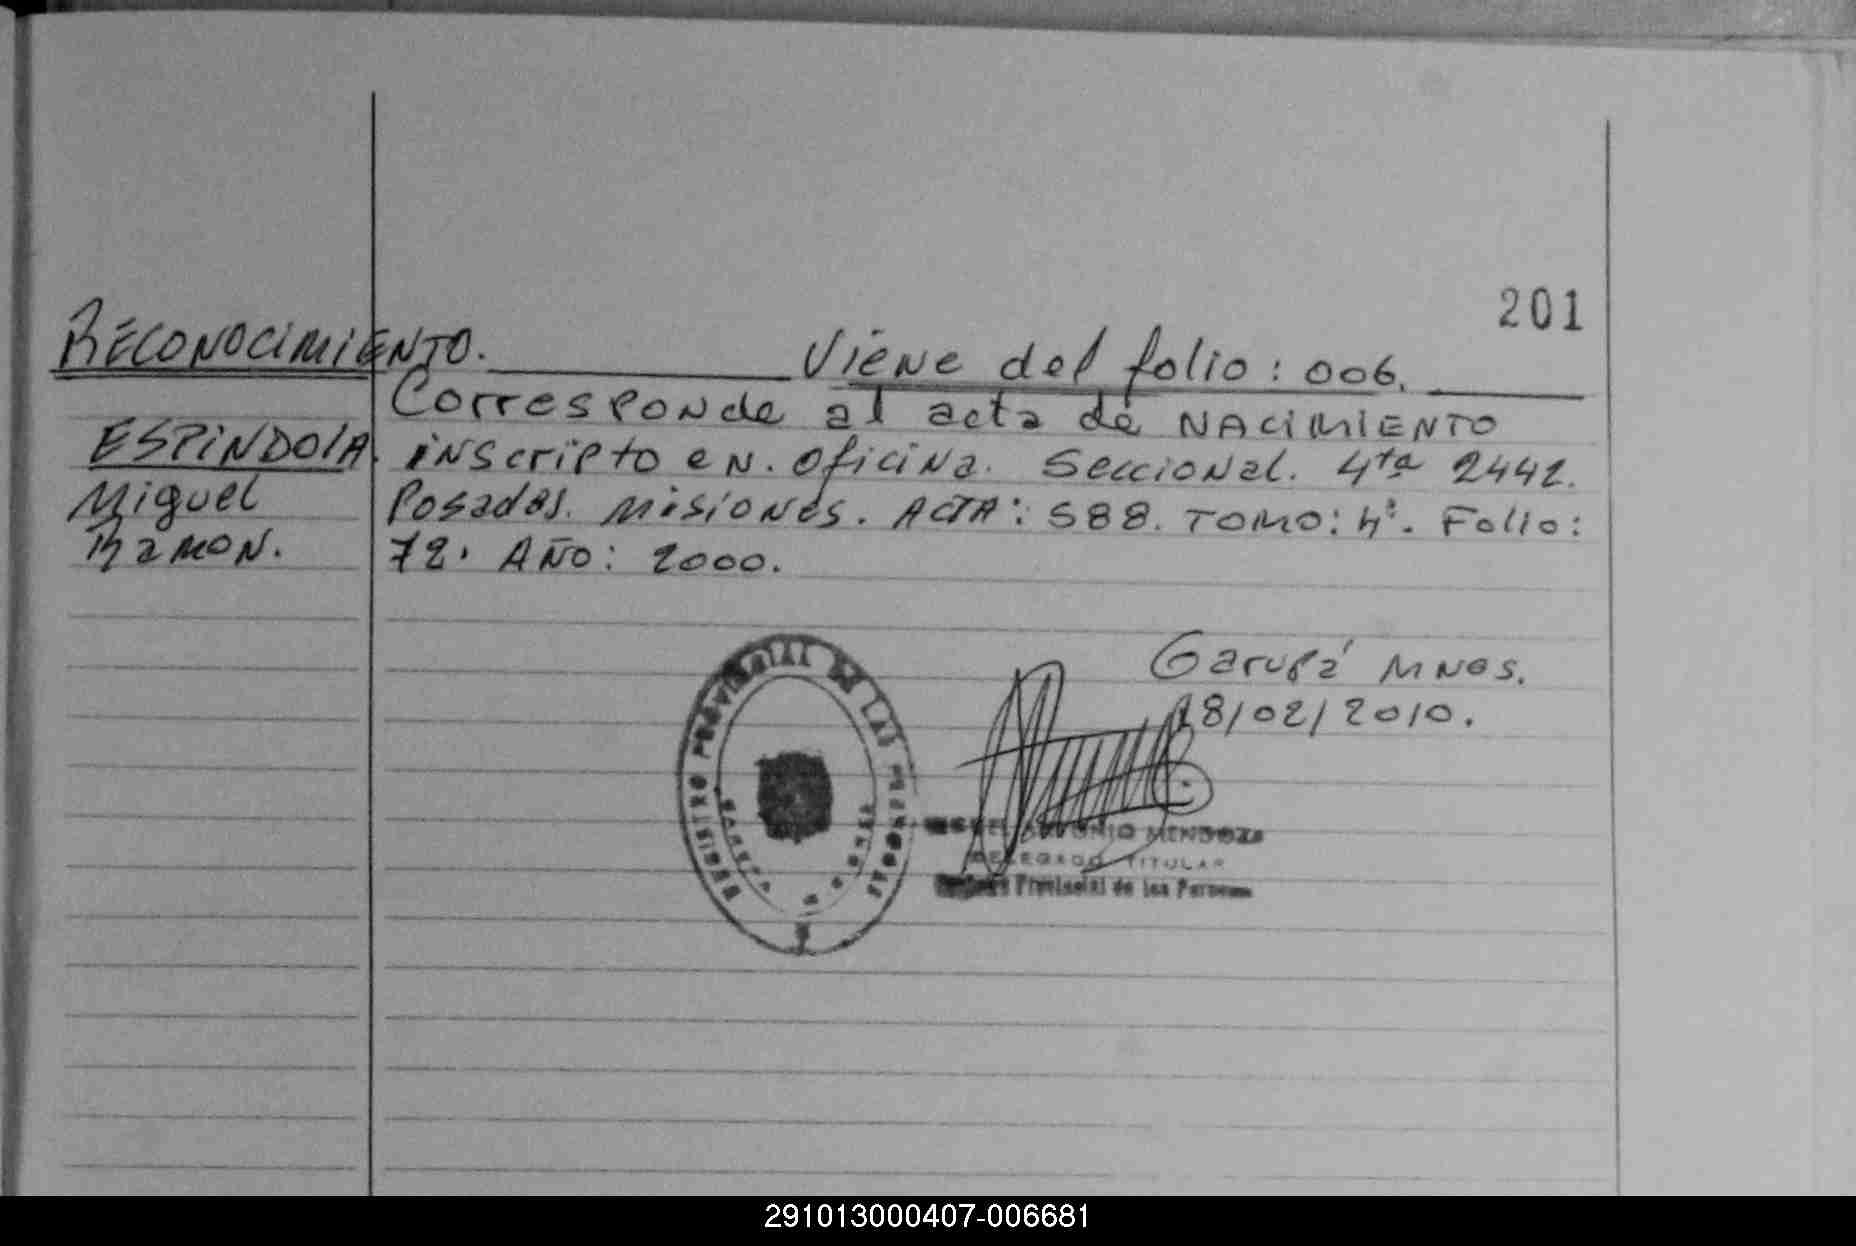 201
RECONOCIMIENTO. Viene del folio: 006.
Corresponde al acta de NACIMIENTO
ESPINDOLA. inscripto en. oficina. Seccional. 4ta 2442.
Miguel Posadas. Misiones. ACTA: 588. TOMO: 4°. Folio:
Ramon. 72. AÑO: 2000.
Garupá MNES.
18/02/2010.
REGISTRO PROVINCIAL DE LAS PERSONAS
ANTONIO MENDOZA
DELEGADO TITULAR
Provincial de las Personas
291013000407-006681